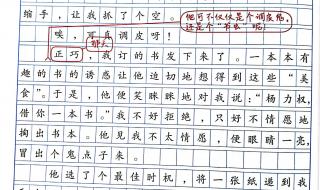 缩手，让我抓了个空。
他可不仅仅是个调皮鬼，
还是个“书虫”呢！
唉，可真调皮呀！
那天
正巧，我订的书发下来了。一本本有
趣的书的诱惑让他迫切地想得到这些“美
食”。于是，他便笑眯眯地对我说：“杨力权，
借你一本书。”我不好拒绝，只好不情愿地
掏出书本。他见我不太情愿，便眼睛一亮，
冒出个鬼点子来。
他选了个最佳时机，将一张纸递到我